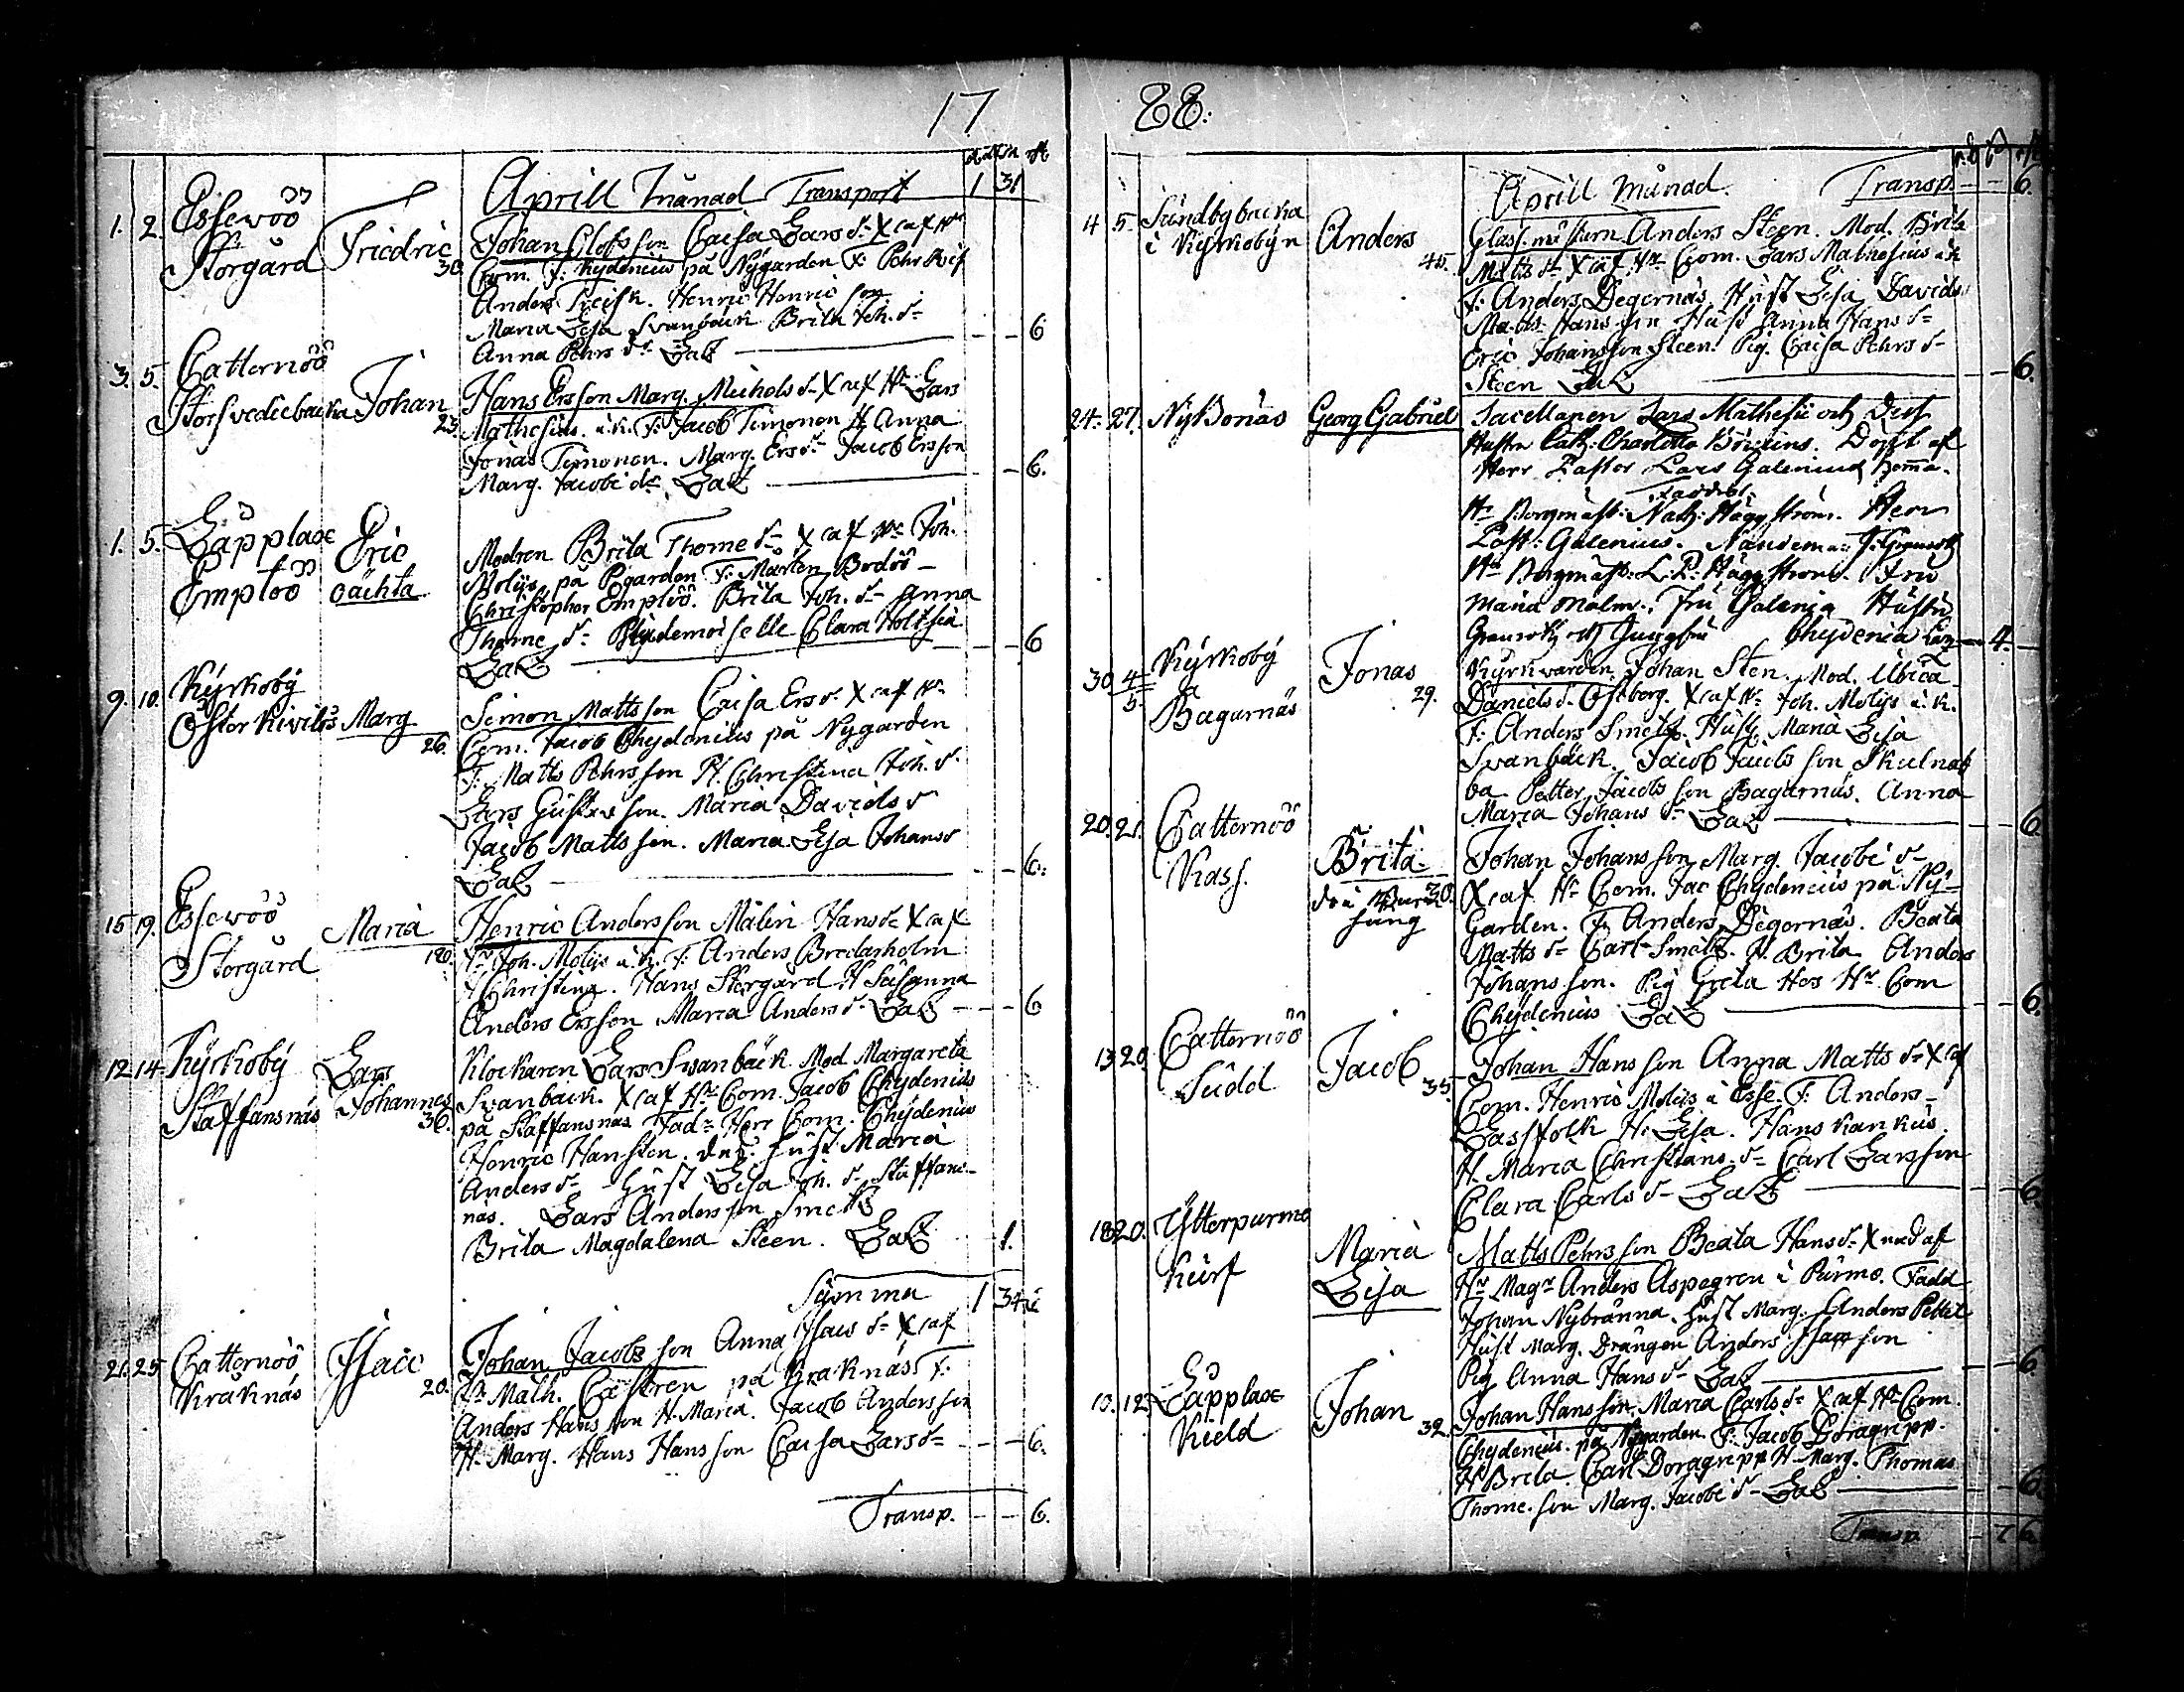 17
Aprill Månad Transport 1 31
1. 2. Essewöö Storgård Friedric 30.
Johan Olofsson Caisa Lars dr X af Hr
Com. J: Chydenius på Nygården F: Pehr
Anders Henric Henricson
Maria Lisa Svanbäck Brita Joh. dr
Anna Pehrs dr Lalz — 6
3. 5. Catternöö Storsvediebacka Johan 23.
Hans Ersson Marg. Michels dr X af Hr Lars
Mathesius i k. F: Jacob Timonen H Anna
Jonas Timonen. Marg. Ers dr Jacob Ersson
Marg. Jacobs dr Lalz — 6.
1. 5. Lapplax Emploö Eric oächta
Modren Brita Thome dr X af Hr Joh.
Molijs på Pgården F: Mårten Bodöö
Christopher Emploö. Brita Joh. dr Anna
Thome dr Mademoiselle Clara
Lalz — 6
9. 10. Kyrkoby Öster Kivilös Marg 26.
Simon Mattsson Caisa Ers d. X af Hr
Com. Jacob Chydenius på Nygården
F: Matts Pehrsson H. Christina Joh. d.
Lars Gustavson. Maria Davids d
Jacob Mattsson. Maria Lisa Johans d
Lalz — 6.
15 19. Essewöö Storgård Maria
Henric Andersson Malin Hans dr X af
Hr Joh. Molijs i k. F: Anders Bredarholm
H Christina. Hans Storgård H Susanna
Anders Ersson Maria Anders dr Lalz — 6
12 14 Kyrkoby Staffansnäs Lars Johannes 36.
Klockaren Lars Svanbäck Mod. Margareta
Svanbäck. X af Hr Com. Jacob Chydenius
på Staffansnäs Fad: Herr Com. Chydenius
Henric Hansten. hust Maria
Anders dr hust Lisa Joh. dr Staffans-
näs. Lars Andersson Smetz
Brita Magdalena Steen. Lalz 1.
Summa 1 34
21. 25 Catternöö Kråknäs Isaac 20.
Johan Jacobsson Anna Isacs dr X af
Hr Math. Castren på Kråknäs F:
Anders Hansson H. Maria. Jacob Andersson
H. Marg. Hans Hansson Caisa Lars dr — 6.
Transp. — 6.
88.
Aprill Månad Transp. — 6.
4 5. Sundbybacka i Kyrkobyn Anders 45.
Glasmästarn Anders Steen. Mod. Brita
Matts dr X af Hr Com. Lars Mathesius i k
F: Anders Degernäs Hust Lisa Davids
Matts Hansson Hust Anna Hans dr
Eric Johansson Steen. Pig. Caisa Pehrs dr
Steen Lalz — 6.
24. 27. Nybonäs Georg Gabriel
Sacellanen Lars Mathesii och dess
Hustru Cath: Charlotta Dopt af
Herr Pastor Lars Galenius hemma.
Faddrar
Hr Borgmäst: Nath: Häggström. Herr
Past: Galenius.
Hr Borgmäst: Häggström. Fru
Maria Malm. Fru Galenia Hustru
och Jungfru Chydenia — 4.
30 4/5 Kyrkoby Bagarnäs Jonas 29.
Kyrkvärden Johan Sten. Mod. Ulrica
Daniels d. Östberg. X af Hr Joh. Molijs i k.
F: Anders Smetz. Hust. Maria Lisa
Svanbäck. Jacob Jacobsson Skulnab
ba Petter Jacobsson Bagarnäs. Anna
Maria Johans dr Lalz — 6.
20. 21. Catternöö Kass. Brita
Johan Johansson Marg. Jacobs dr
X af Hr Com. Jac Chydenius på Ny-
Gården. F. Anders Degernäs. Beata
Matts dr Carl Smetz. H. Brita Anders
Johansson. Pig Greta Hos Hr Com
Chydenius Lalz — 6.
13 20. Catternöö Sudd Jacob 35
Johan Hansson Anna Matts dr X af
Com. Henric Molijs i Esse. F: Anders
Gassfolk H. Lisa. Hans Kankus.
H. Maria Christians dr Carl Larsson
Clara Carls dr Lalz — 6
18 20. Ytterpurmo Kurf Maria Lisa
Matts Pehrsson Beata Hans dr X nad af
Hr Magr Anders Aspegren i Purmo. Fadd
Johan Nybränna. hust Marg. Anders
Hust Marg. Drängen Anders Isacsson
Pig Anna Hans dr Lalz — 6.
10. 12. Lapplax Kield Johan 32.
Johan Hansson Maria Carls dr X af Hr Com.
Chydenius på Nygården. F. Jacob Doragripp.
H Brita Carl Doragripp H. Marg. Thomas
Thome. son Marg. Jacobs dr Lalz — 6.
Transp. 6